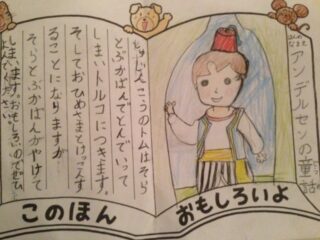 ほんの
なまえ
アンデルセンの童話
しゅじんこうのトムはそら
とぶかばんでとんでいって
しまいトルコにつきます。
そしておひめさまとけっこんす
ることになりますが…
そらとぶかばんがやけて
しまいます。おもしろいのでぜひ
よんでください。
このほん
おもしろいよ